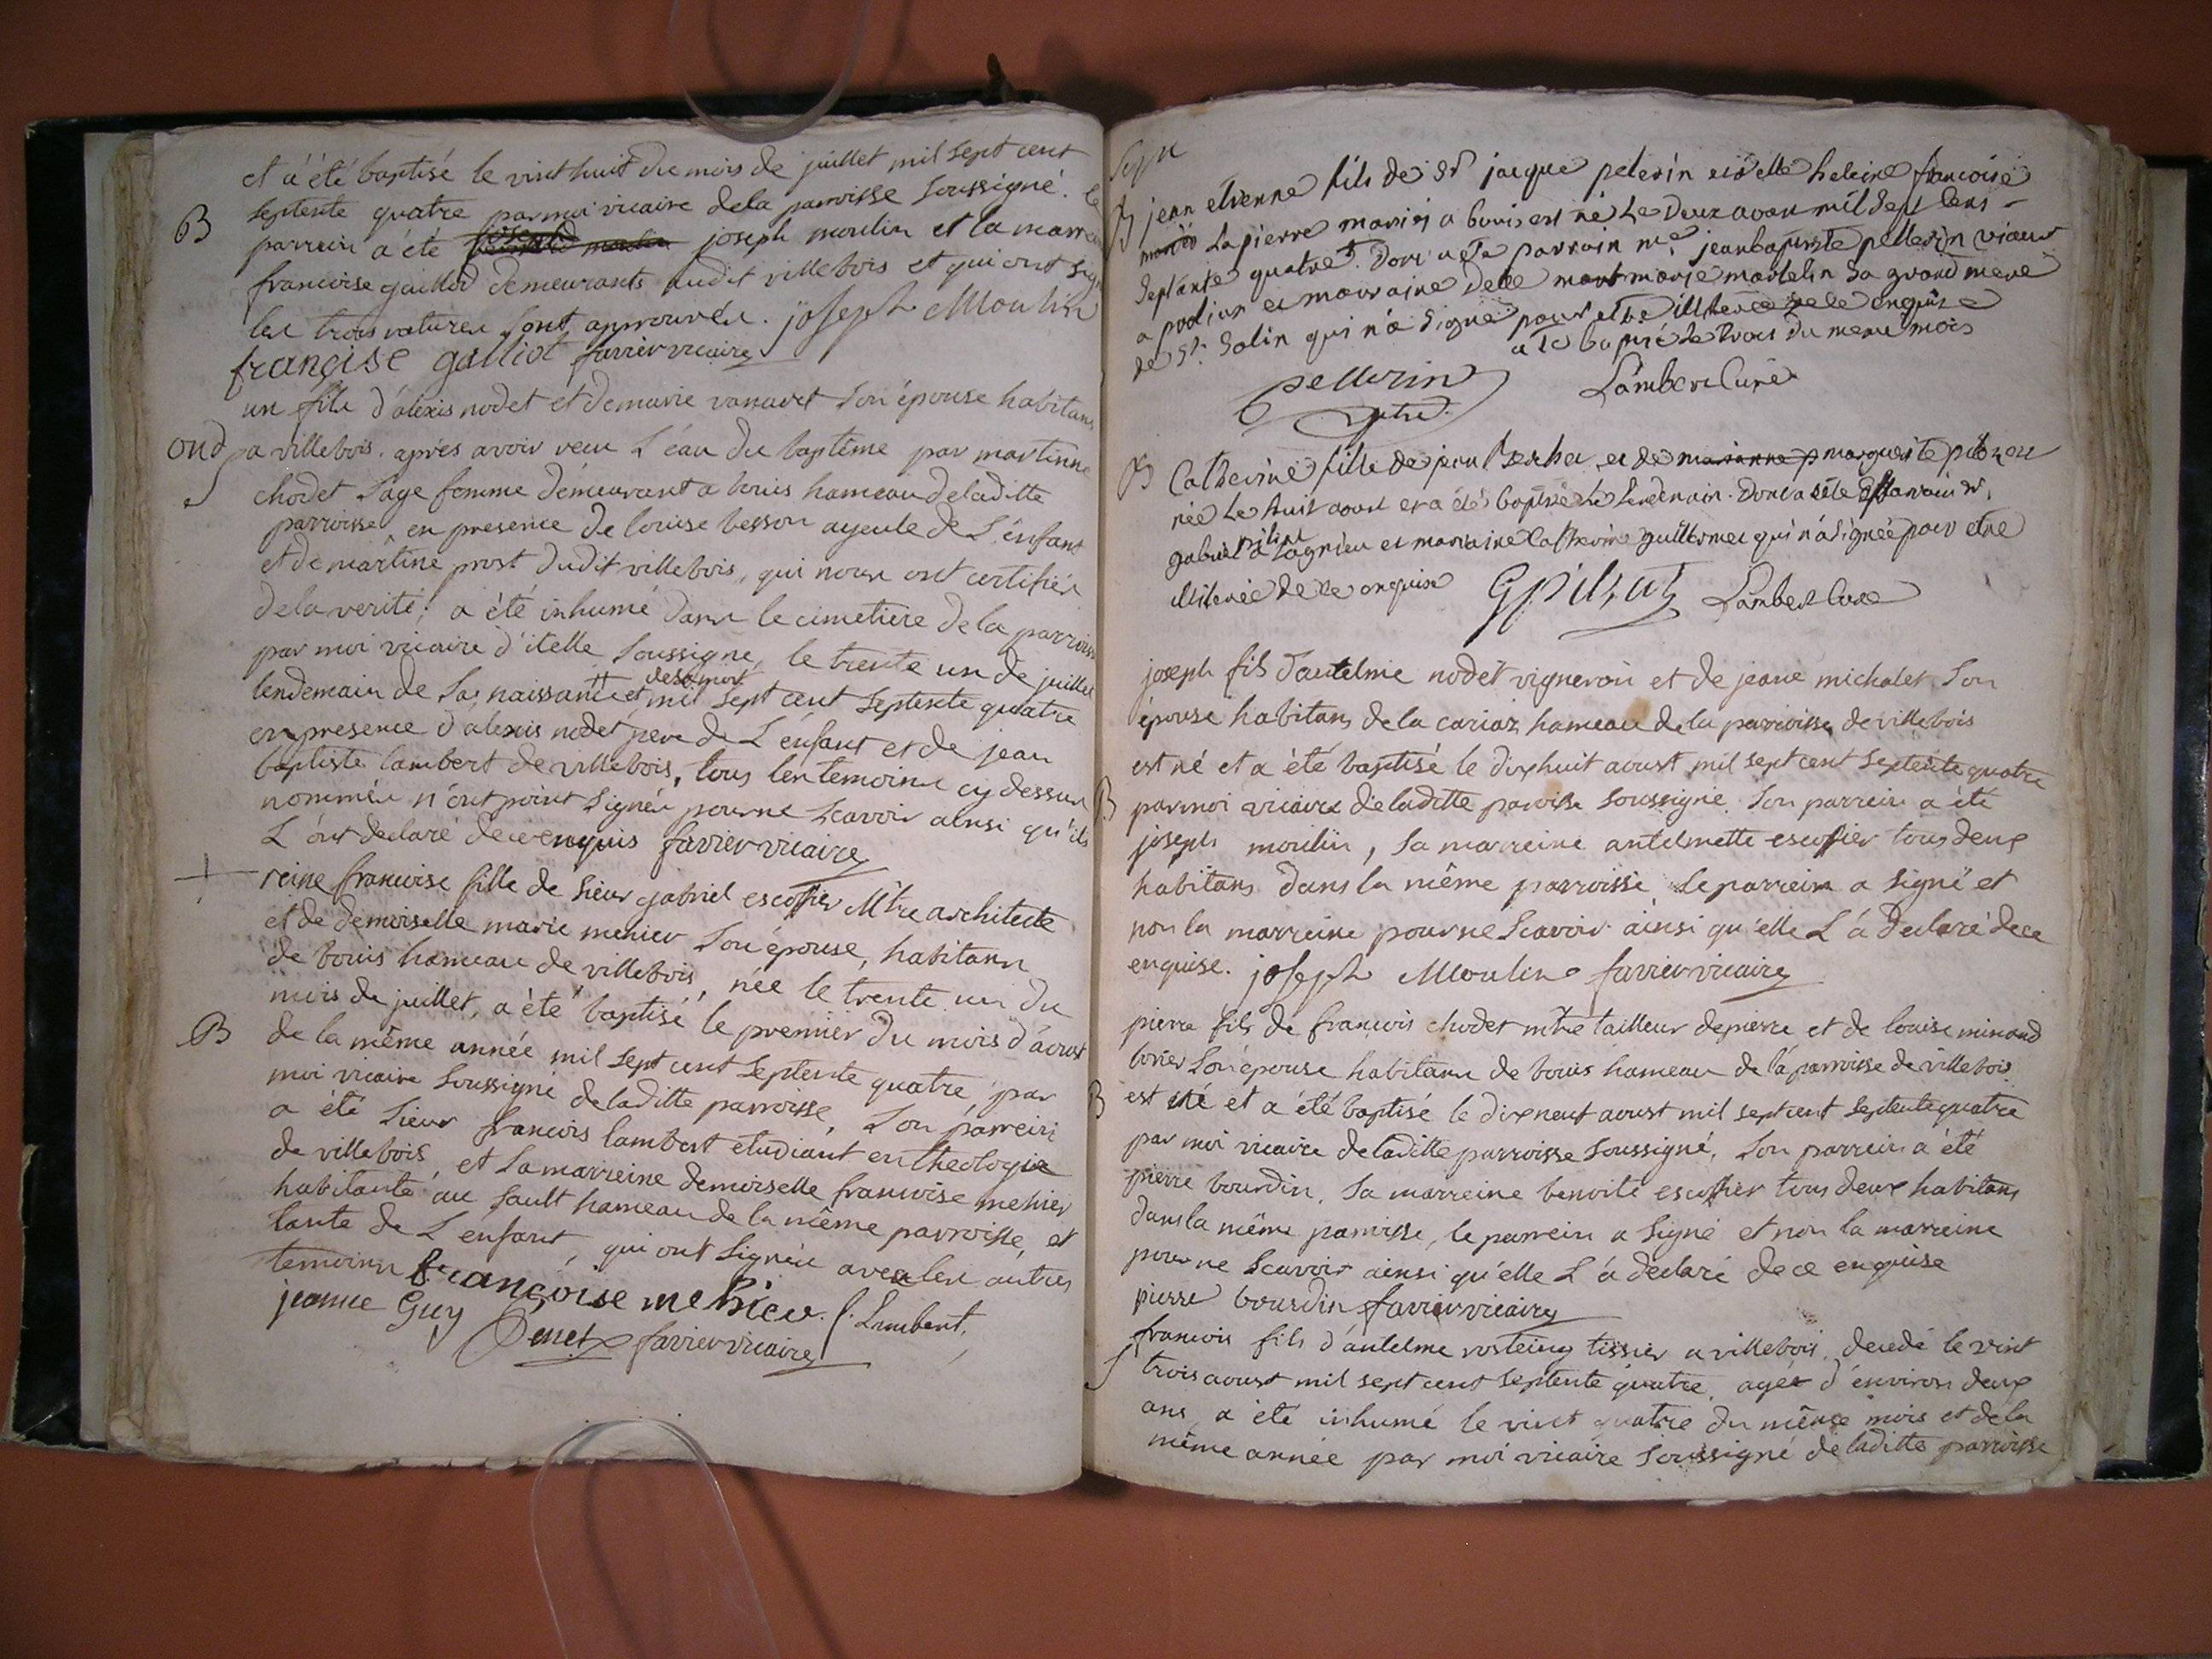 et a été baptisé le vint huit du mois de juillet mil sept cent
septente quatre par moi vicaire dela parroisse soussigné. le
B
parrein a été joseph moulin et la marrein
francoise gaillod demeurants audit villebois et qui ont sign
les trois ratures sont approuvées. joseph Moulin
françise galliot favier vicaire
un fils d'alexis nodet et de marie vanavet son épouse habitans
ond
a villebois. aprés avoir reçu L'éau du baptême par martinne
chodet sage femme demeurant a bouis hameau de laditte
parroisse en presence de louise besson ayeule de L'énfant
et de martine prost dudit villebois, qui nous ont certifiés
dela verité; a été inhumé dans le cimetiere de la parroisse
par moi vicaire d'itelle soussigné, le trente un de juillet
lendemain de sa naissante et de sa mort mil sept cent septente quatre
en presence d'alexis nodet pere de L'énfant et de jean
baptiste lambert de villebois, tous les temoins cy dessus
nommés n'ont point signés pour ne scavoir ainsi qu'ils
L'ont declaré de ce enquis favier vicaire
reine francoise fille de sieur gabriel escoffier Mtre architecte
et de demoiselle marie menier son épouse, habitans
de bouis hameau de villebois, née le trente un du
mois de juillet, a été baptisé le premier du mois d'aoust
B
de la même année mil sept cent septente quatre par
moi vicaire soussigné de laditte parroisse, son parrein
a été sieur francois lambert etudiant en theologie
de villebois et sa marreine demoiselle francoise mehier
habitante au sault hameau de la même parroisse, et
tante de L'énfant, qui ont signés avec les autres
temoins françoise mehier. f. Lambert,
jeanne Guy favier vicaire

B
jean etienne fils de Sr jacque pelerin et d'elle heleine francoise
Lapierre mariés a bouis est né le deux aoust mil sept cens
septante quatre. Dont a été parrain me jean baptiste pellerin
et marraine delle marie martelin sa grand mere
de St. Solin qui n'a signé pour etre illiteree de ce enquise
a été baptisé le trois du meme mois
pellerin Lambert Curé
B
Catherine fille de jean et de marguerite
née le huit aoust et a été baptisé le lendemain. Dont a été parrain Sr.
gabriel pitiot a Lagnieu et marraine Catherine guillermet qui n'a signée pour etre
illiteree de ce enquise Lambert Curé
joseph fils d'antelme nodet vigneron et de jeane michalet son
épouse habitans de la cariaz hameau de la parroisse de villebois
est né et a été baptisé le dix huit aoust mil sept cent septente quatre
B
par moi vicaire de laditte paroisse soussigné. son parrein a été
joseph moulin, sa marreine antelmette escoffier tous deux
habitans dans la même parroisse le parrein a signé et
non la marreine pour ne scavoir ainsi qu'elle L'a declaré de ce
enquise. joseph Moulin favier vicaire
pierre fils de francois chodet mtre tailleur de pierre et de louise minand
borier son épouse habitans de bouis hameau de la parroisse de villebois
B
est né et a été baptisé le dix neuf aoust mil sept cent septente quatre
par moi vicaire de laditte parroisse soussigné, son parrein a été
pierre bourdin, sa marreine benoite escoffier tous deux habitans
dans la même parroisse, le parrein a signé et non la marreine
pour ne scavoir ainsi qu'elle L'a declaré de ce enquise
pierre bourdin favier vicaire
francois fils d'antelme rosteing tissier a villebois, decedé le vint
trois aoust mil sept cent septente quatre, agér d'énviron deux
ans, a été inhumé le vint quatre du même mois et de la
même année par moi vicaire soussigné de laditte parroisse